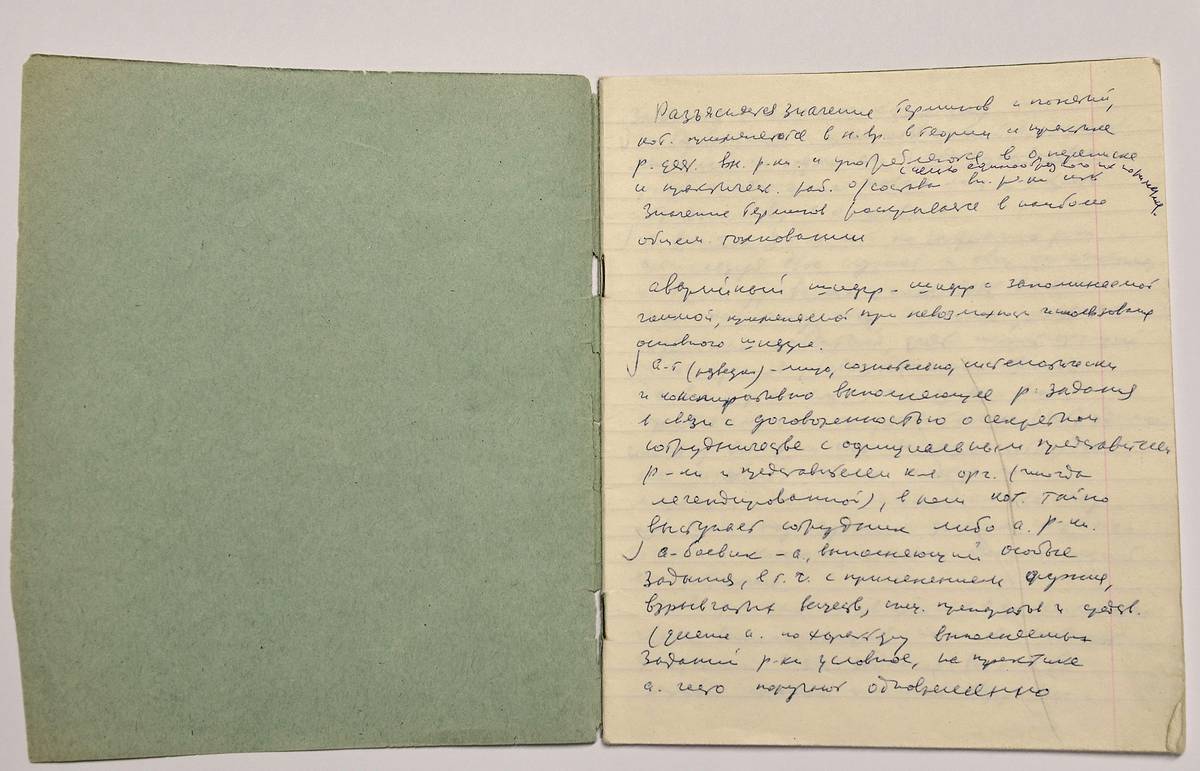 Разъясняется значение терминов и понятий,
кот. применяются в н. вр. в теории и практике
р. деят. вн. р-ки. и употребляются в о. переписке
с целью единообразного их понимания.
и практическ. раб. о/состава вн. р-ки
Значение терминов раскрывается в наиболее
общем. толковании
аварийный шифр - шифр с запоминаемой
гаммой, применяемой при невозможности использования
основного шифра.
а-т (разведки) - лицо, сознательно, систематически
и конспиративно выполняющее р. задания
в связи с договоренностью о секретном
сотрудничестве с официальным представителем
р-ки и представителем к-л. орг. (иногда
легендированной), в кот. тайно
выступает сотрудник либо а. р-ки.
а-боевик - а, выполняющий особые
задания, в т. ч. с применением оружия,
взрывчатых веществ, спец. препаратов и средств.
(деление а. по характеру выполняемых
заданий р-ки условное, на практике
а. часто поручают одновременно